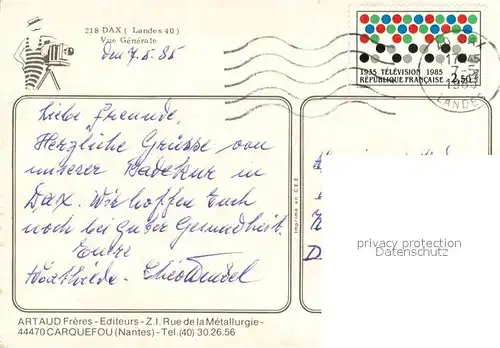 218 DAX ( Landes 40 )
Vue Générale
den 7.5.85
1935 TÉLÉVISION 1985
RÉPUBLIQUE FRANÇAISE 2,50
LANDES
Liebe Freunde,
Herzliche Grüsse von
unserer Badekur in
Dax. Wir hoffen Euch
noch bei guter Gesundheit.
Eure
Imprimé en C.E.E.
privacy protection
Datenschutz
ARTAUD Frères - Editeurs - Z.I. Rue de la Métallurgie -
44470 CARQUEFOU (Nantes) - Tel. (40) 30.26.56